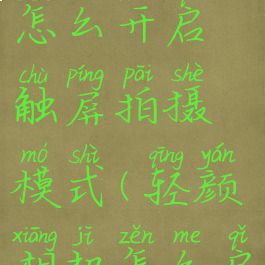 怎么开启
chù píng pāi shè
触屏拍摄
mó shì qīng yán
模式(轻颜
xiàng jī zěn me qǐ
相机怎么启